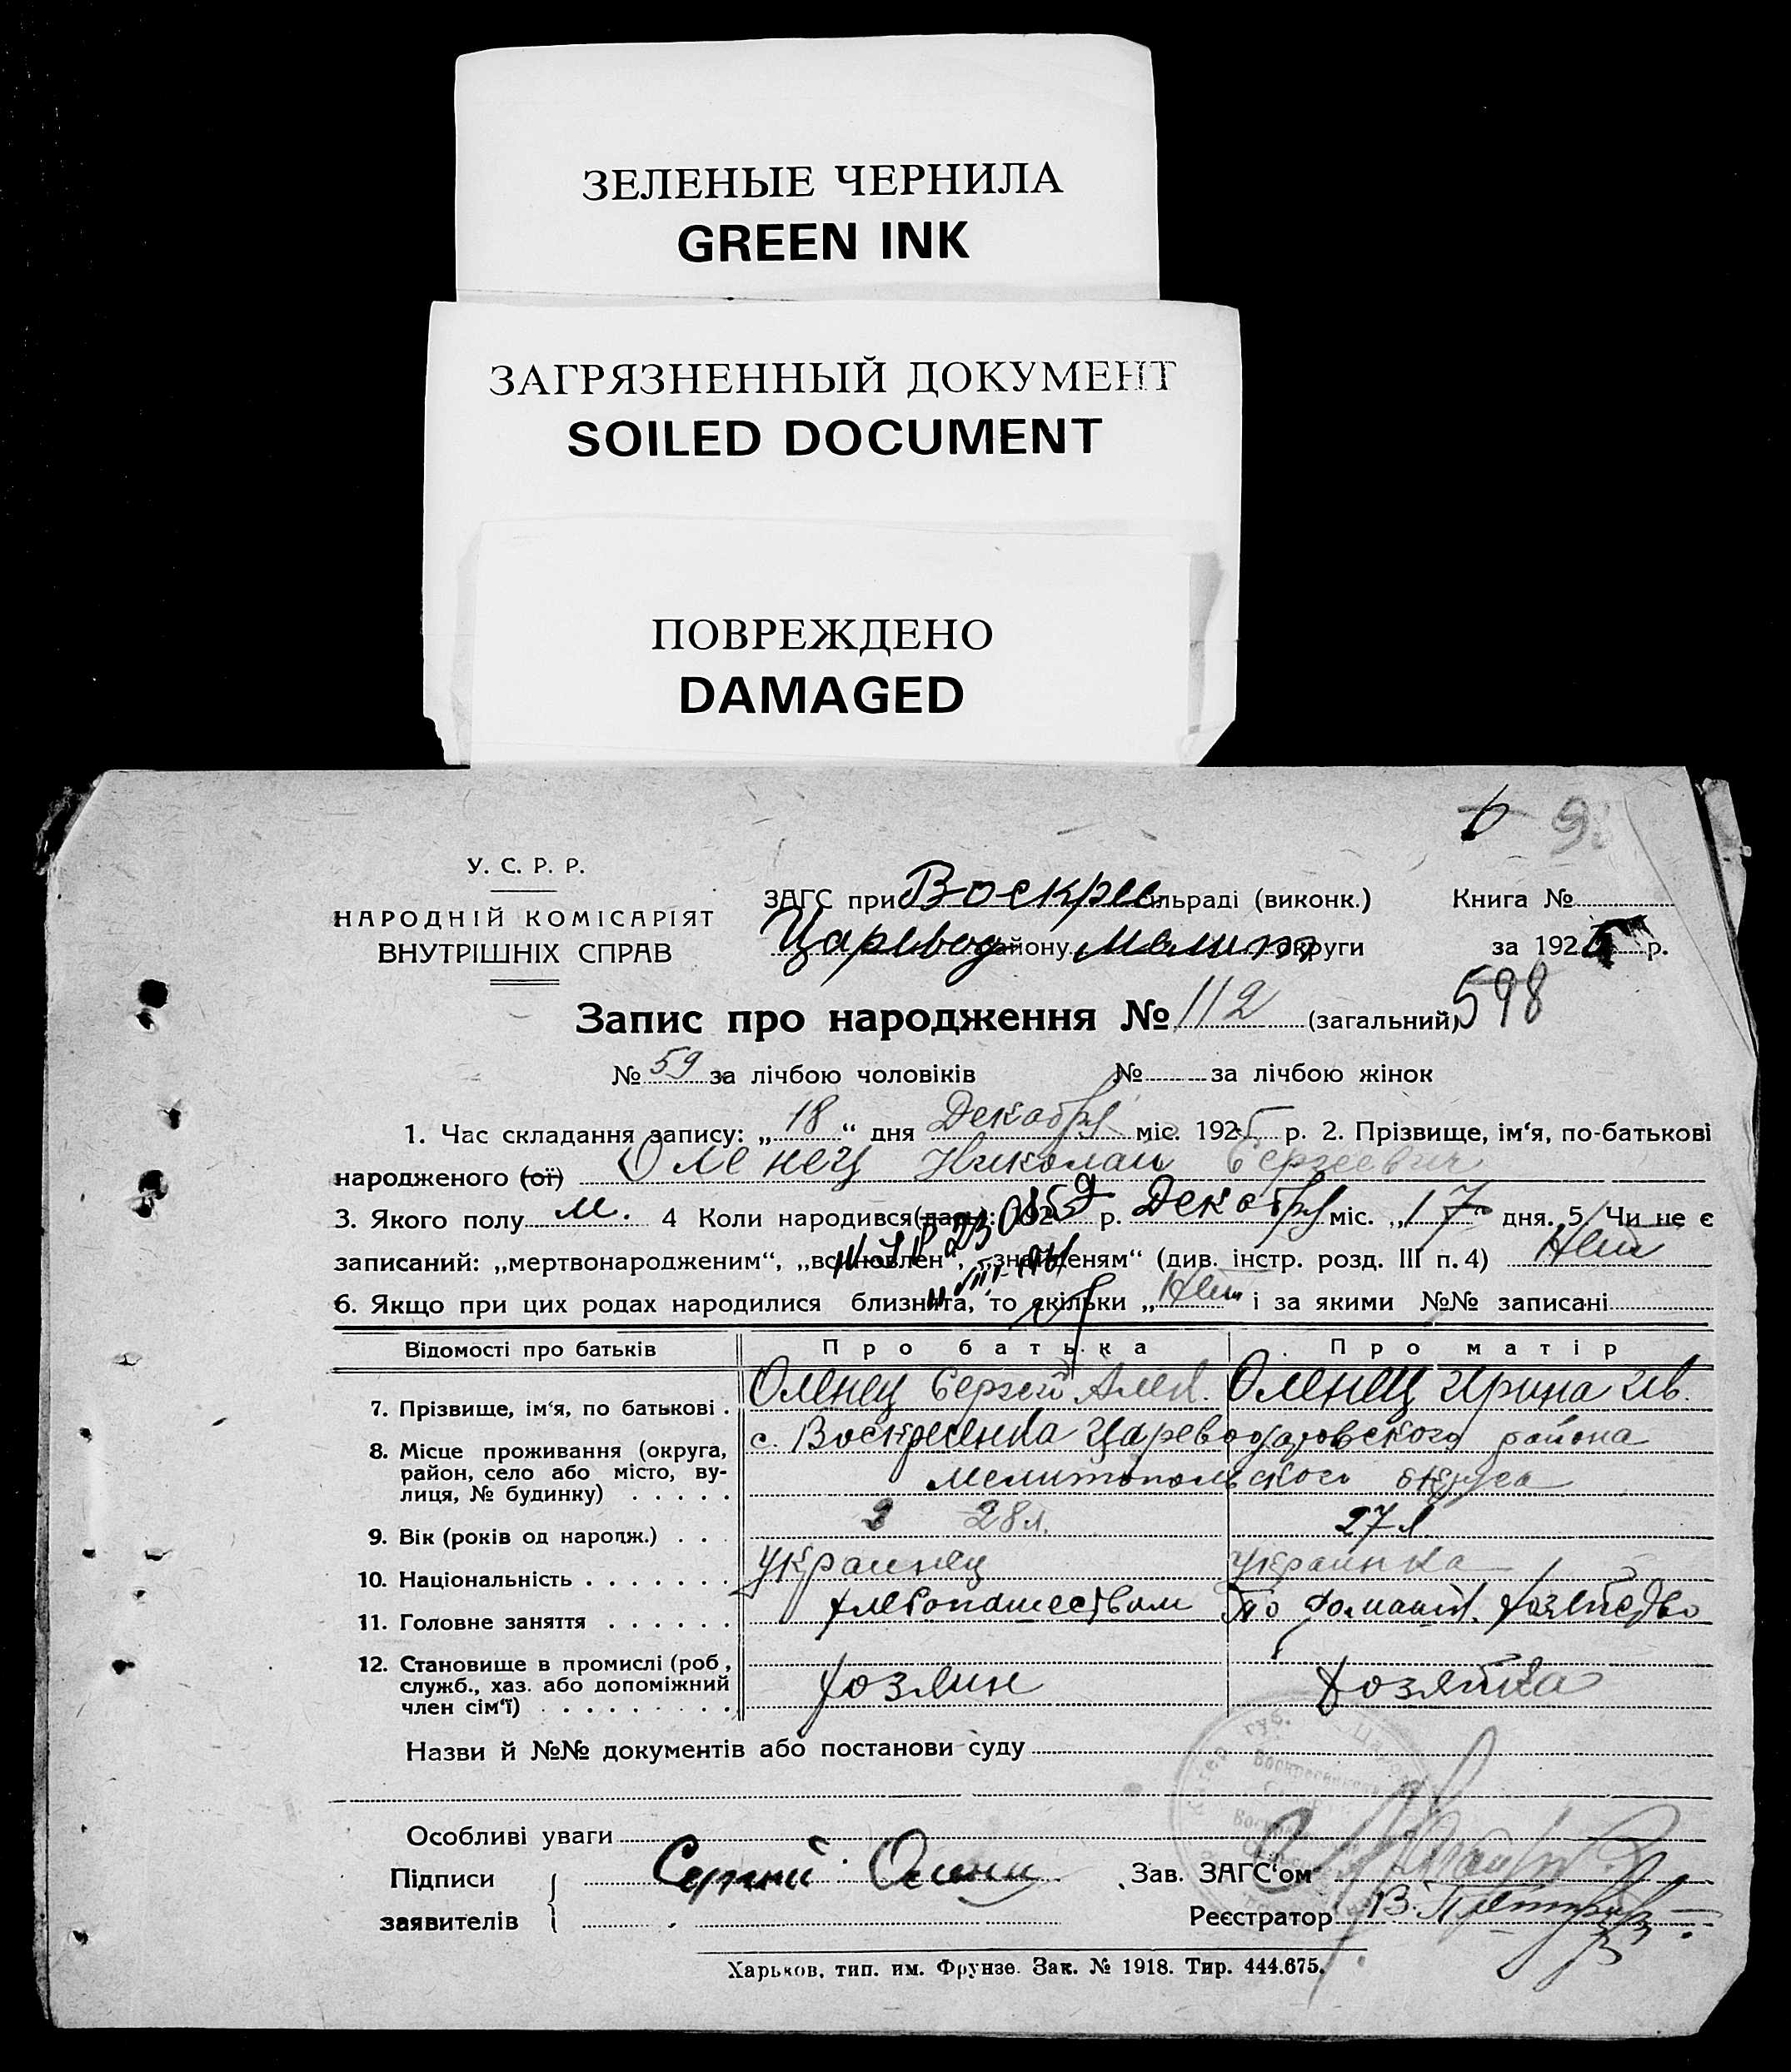 ЗЕЛЕНЫЕ ЧЕРНИЛА
GREEN INK
ЗАГРЯЗНЕННЫЙ ДОКУМЕНТ
SOILED DOCUMENT
ПОВРЕЖДЕНО
DAMAGED
У. С. Р. Р.
НАРОДНІЙ КОМІСАРІЯТ
ВНУТРІШНІХ СПРАВ
ЗАГС при Воскрес сільраді (виконк.) Книга №
Царевод району Мелит округи за 1925 р.
Запис про народження № 112 (загальний) 598
№ 59 за лічбою чоловіків № за лічбою жінок
1. Час складання запису: „18“ дня Декабря міс. 1925 р. 2. Прізвище, ім‘я, по-батькові
народженого (ої) Оленец Николай Сергеевич
3. Якого полу м. 4 Коли народився (лась): 1925 р. Декабря міс. „17“ дня. 5. Чи не є
записаний: „мертвонародженим“, „встановлен“, „знайденям“ (див. інстр. розд. III п. 4) Нет
6. Якщо при цих родах народилися близнята, то скільки „Нет“ і за якими №№ записані
Відомості про батьків Про батька Про матір
7. Прізвище, ім‘я, по батькові . Оленец Сергей Алек. Оленец Ирина Ив.
8. Місце проживання (округа, район, село або місто, вулиця, № будинку) с. Воскресенка Цареводаровского района
Мелитопольского округа
9. Вік (років од народж.) 28 л. 27 л
10. Національність Украинец Украинка
11. Головне заняття хлебопашеством по домашн. хозяйство
12. Становище в промислі (роб., служб., хаз. або допоміжний член сім‘ї) хозяин хозяйка
Назви й №№ документів або постанови суду
Особливі уваги
Підписи Сергей Олени Зав. ЗАГС‘ом
заявителів Реєстратор В.
Харьков, тип. им. Фрунзе. Зак. № 1918. Тир. 444.675.